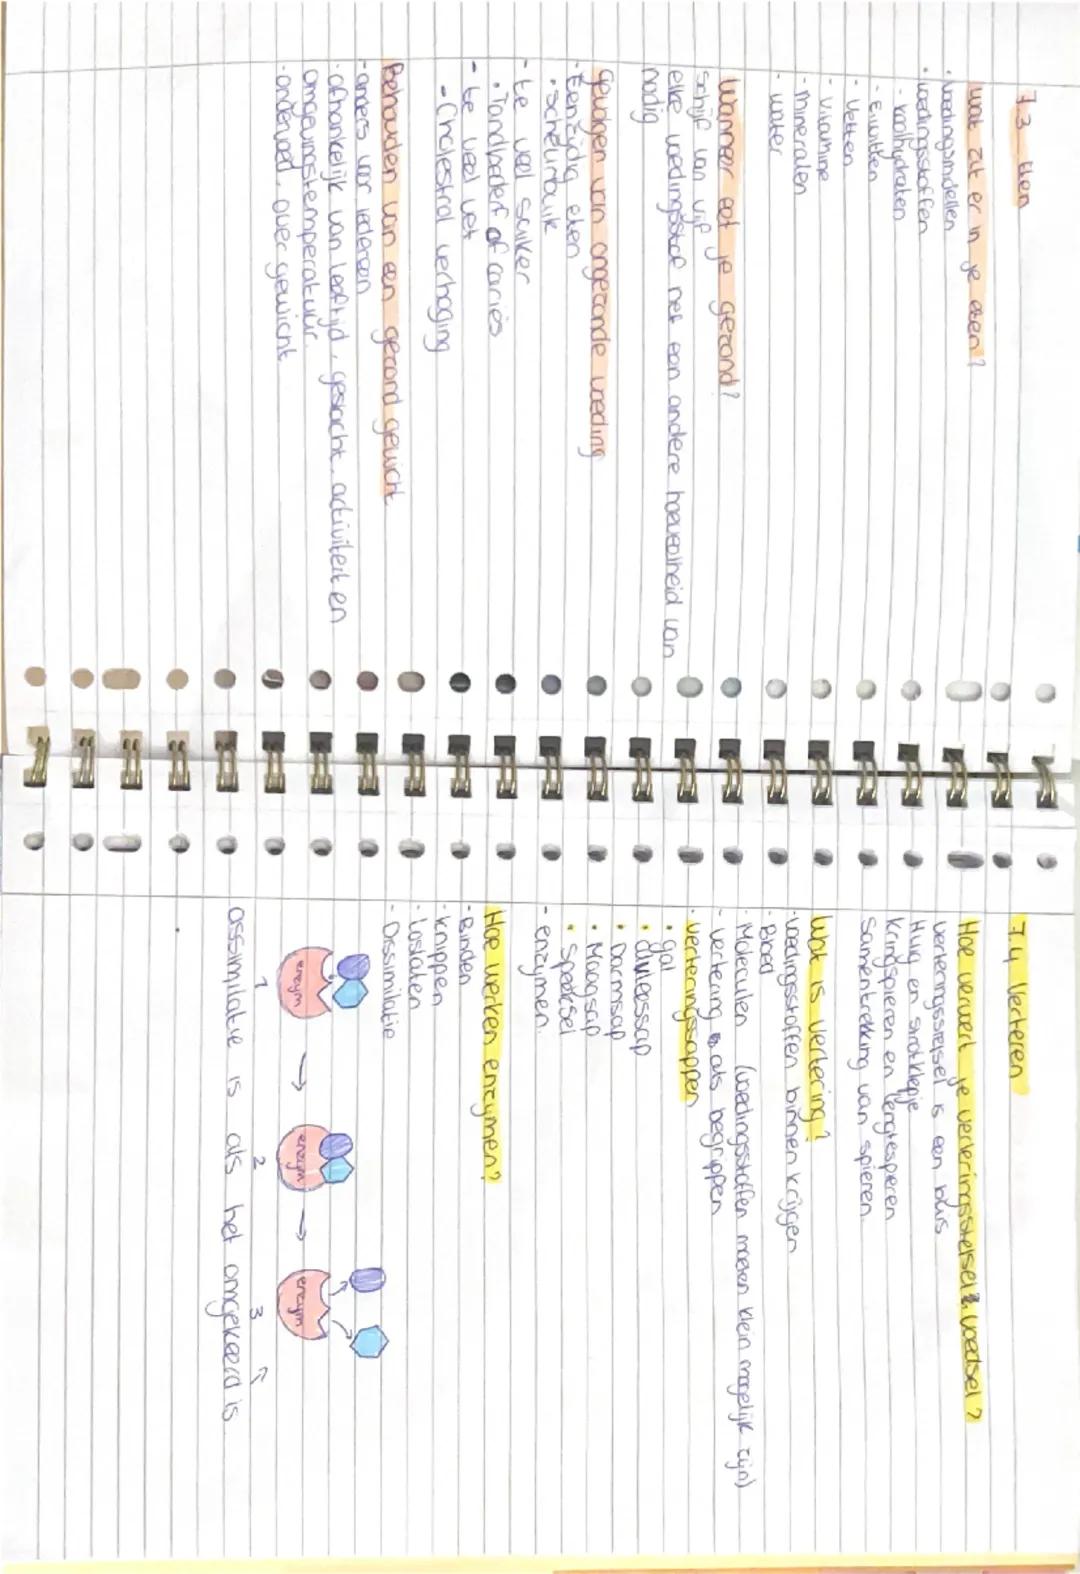 7.3 Eten
Wat zit er in je eten?
• voedingsmidellen
• voedingsstoffen
- koolhydraten
- Eiwitten
- Vetten
- Vitamine
- Mineralen
- water
Wanneer eet je gezond?
schijf van vijf
elke voedingsstof net een andere hoeveelheid van
nodig
gevolgen van ongezonde voeding
- Eenzijdig eten
• scheurbuik
- te veel suiker
• Tandbederf of cariës
- te veel vet
- Cholestrol verhoging
Behouden van een gezond gewicht
- anders voor iedereen
- afhankelijk van leeftijd, geslacht, activiteit en
omgevingstemperatuur
- ondervoed, over gewicht
7.4 Verteren
Hoe verwerkt je verteringsstelsel voedsel?
verteringsstelsel is een buis
Huig en strotklepje
Kringspieren en lengtesperen
Samentrekking van spieren.
Wat is vertering?
- voedingsstoffen binnen krijgen
- Bloed
- Moleculen (voedingsstoffen moeten klein mogelijk zijn)
- vertering als begrippen
- verteringssappen
• gal
• alvleessap
• Darmsap
• Maagsap
• Speeksel
- enzymen.
Hoe werken enzymen?
- Binden
- Knippen
- Loslaten
- Dissimilatie
enzym → enzym → enzym
1 2 3
assimilatie is als het omgekeerd is